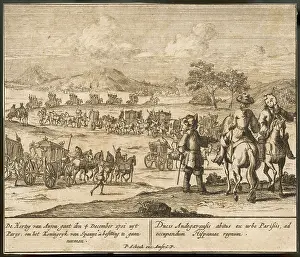 De Hertog van Anjou gaat den 4 December 1700 uyt
Parys, om het Koningryk van Spanje in besitting te gaan
neemen.
Ducis Andegavensis abitus ex urbe Parisiis, ad
occupandum Hispaniae regnum.
P. Schenk exc. Amst. C.P.